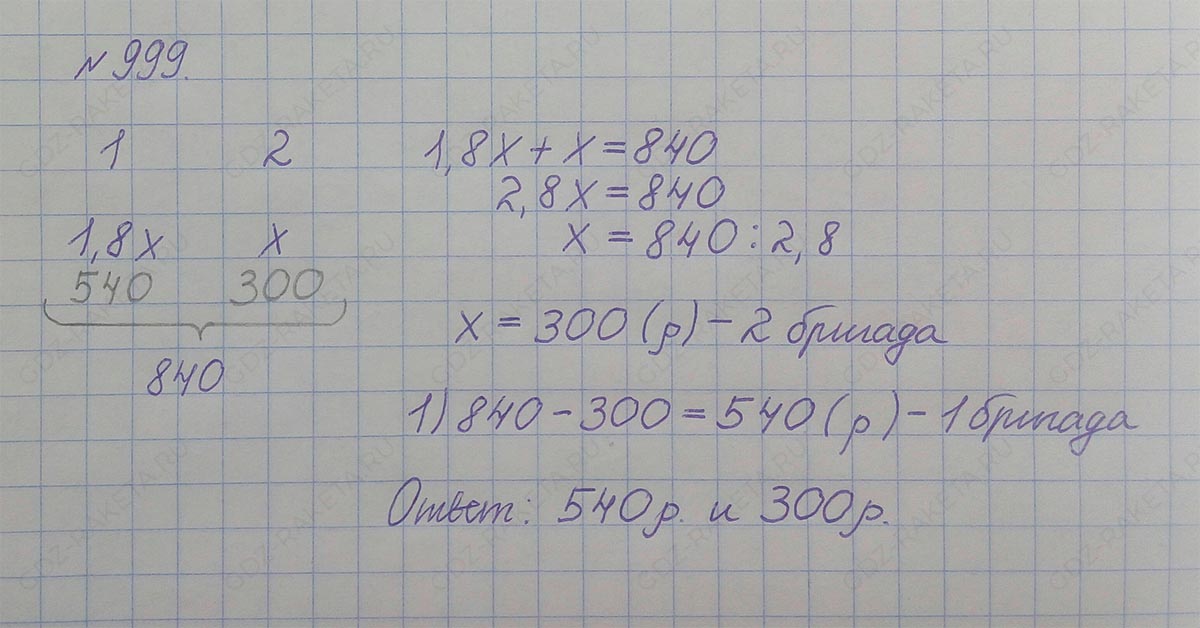 №999.
1 2
1,8x x
540 300
840
1,8x + x = 840
2,8x = 840
x = 840 : 2,8
x = 300 (р) – 2 бригада
1) 840 – 300 = 540 (р) – 1 бригада
Ответ: 540р. и 300р.
GDZ-RAKETA.RU